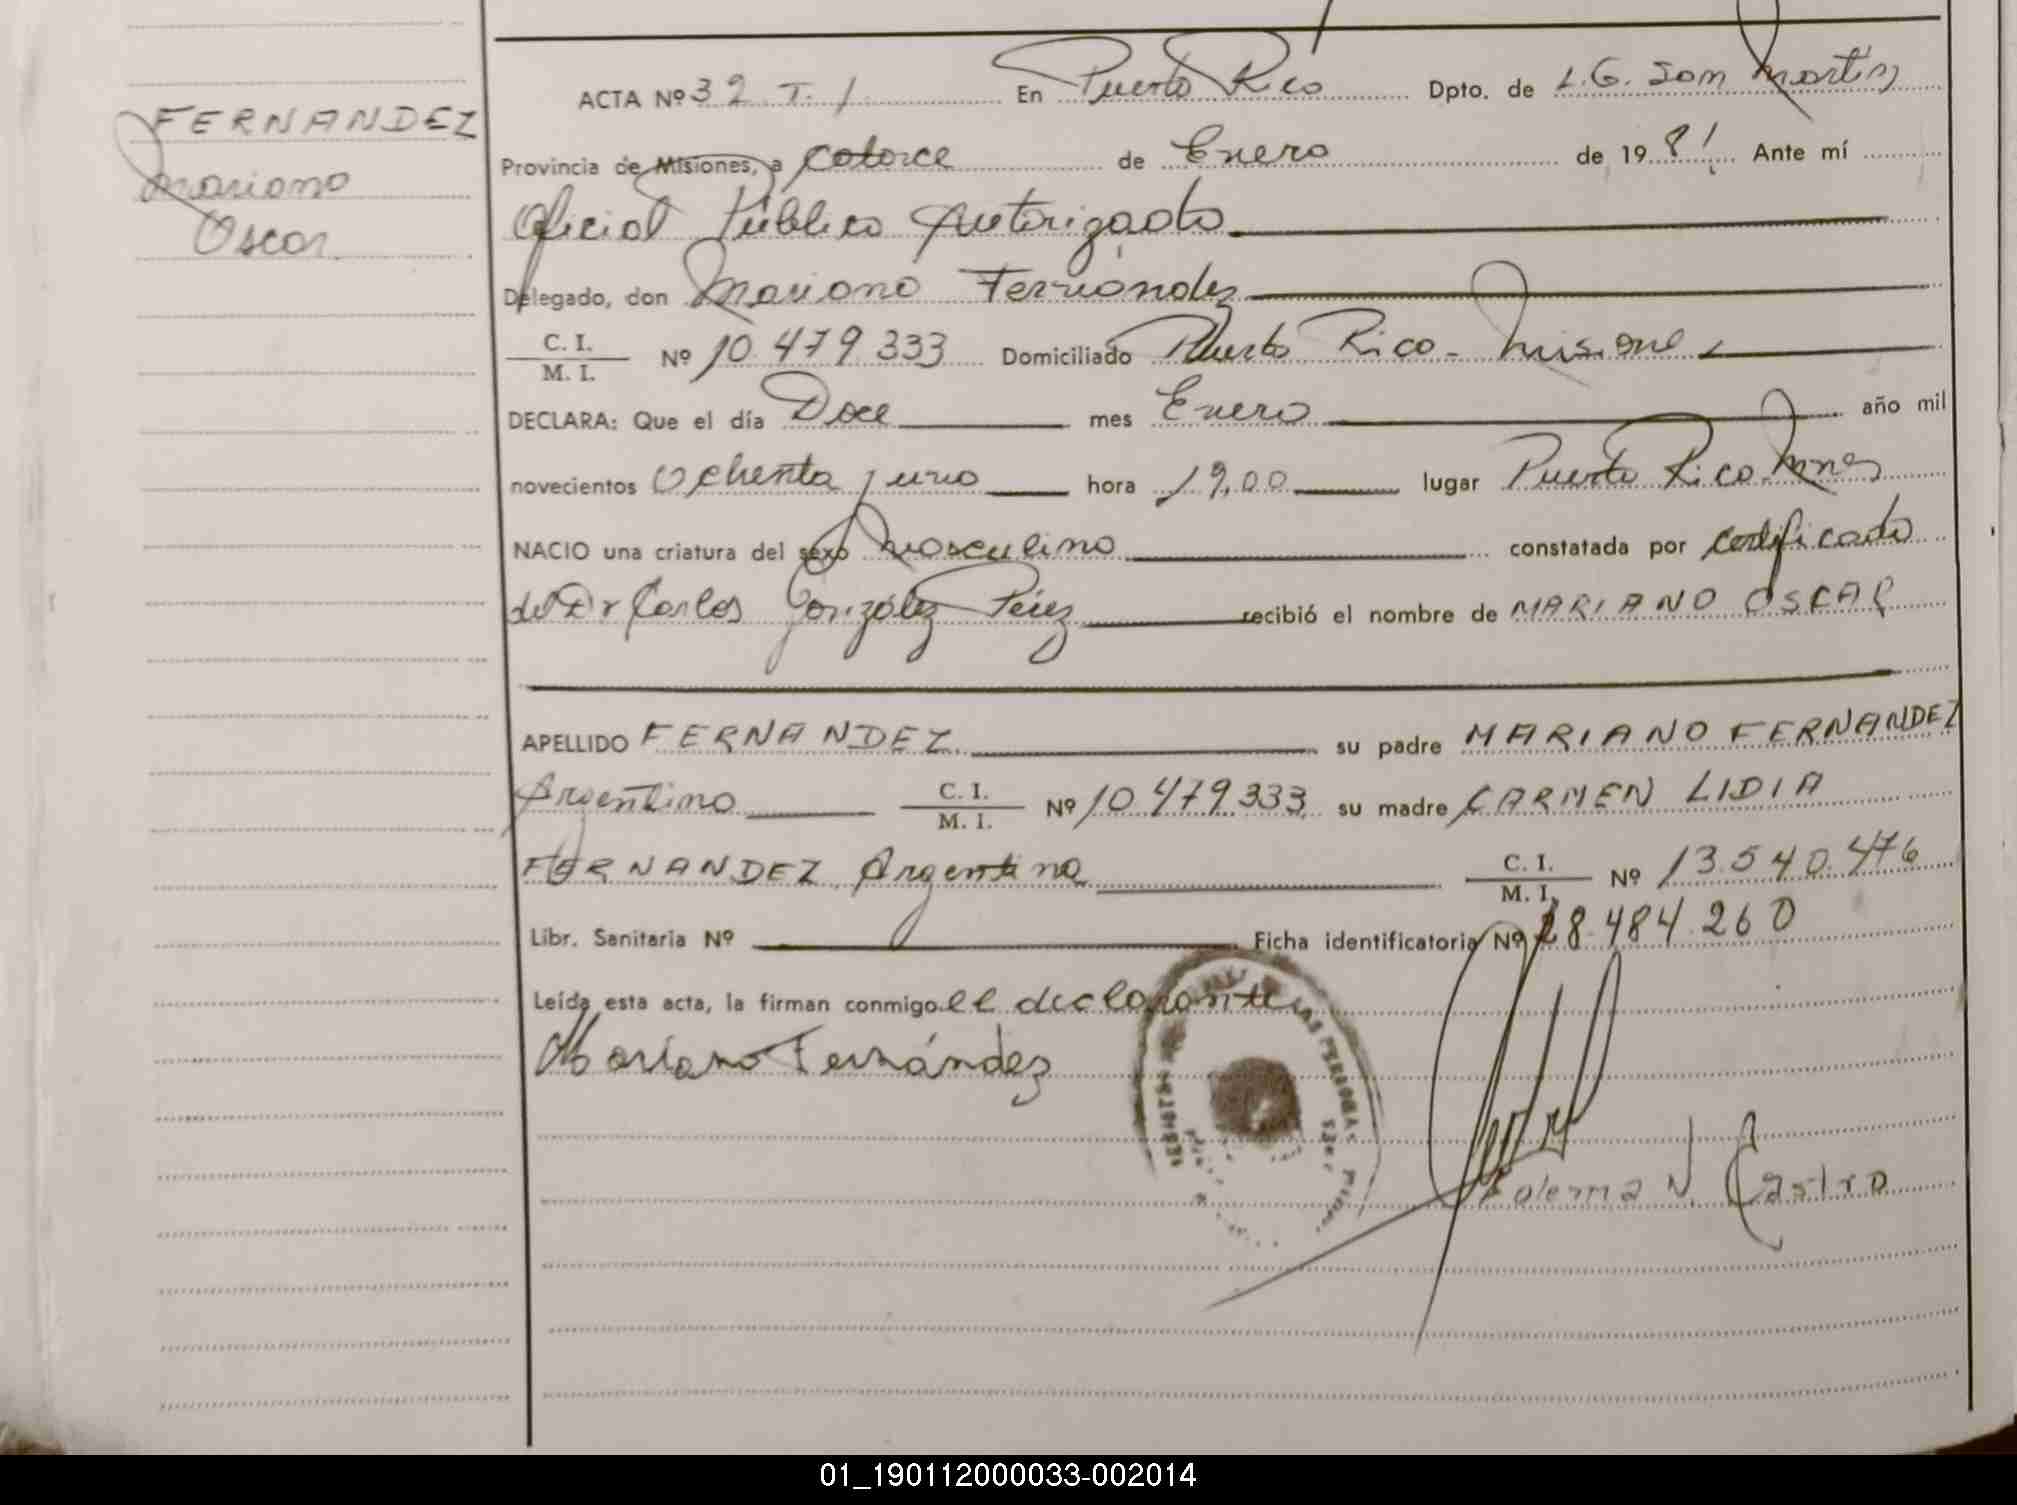 FERNANDEZ
Mariano
Oscar
ACTA Nº 32 T. 1 En Puerto Rico Dpto. de L.G. San Martin
Provincia de Misiones, a catorce de Enero de 1981 Ante mí
Oficial Público Autorizado
Delegado, don Mariano Fernández
C. I.
M. I. Nº 10.479.333 Domiciliado Puerto Rico - Misiones
DECLARA: Que el día Doce mes Enero año mil
novecientos Ochenta y uno hora 19,00 lugar Puerto Rico Mnes
NACIO una criatura del sexo Masculino constatada por certificado
del Dr Carlos González Pérez recibió el nombre de MARIANO OSCAR
APELLIDO FERNANDEZ su padre MARIANO FERNANDEZ
Argentino C. I.
M. I. Nº 10.479.333 su madre CARMEN LIDIA
FERNANDEZ Argentina C. I.
M. I. Nº 13.540.476
Libr. Sanitaria Nº Ficha identificatoria Nº 28.484.260
Leída esta acta, la firman conmigo el declarante
Mariano Fernández
N. Castro
01_190112000033-002014